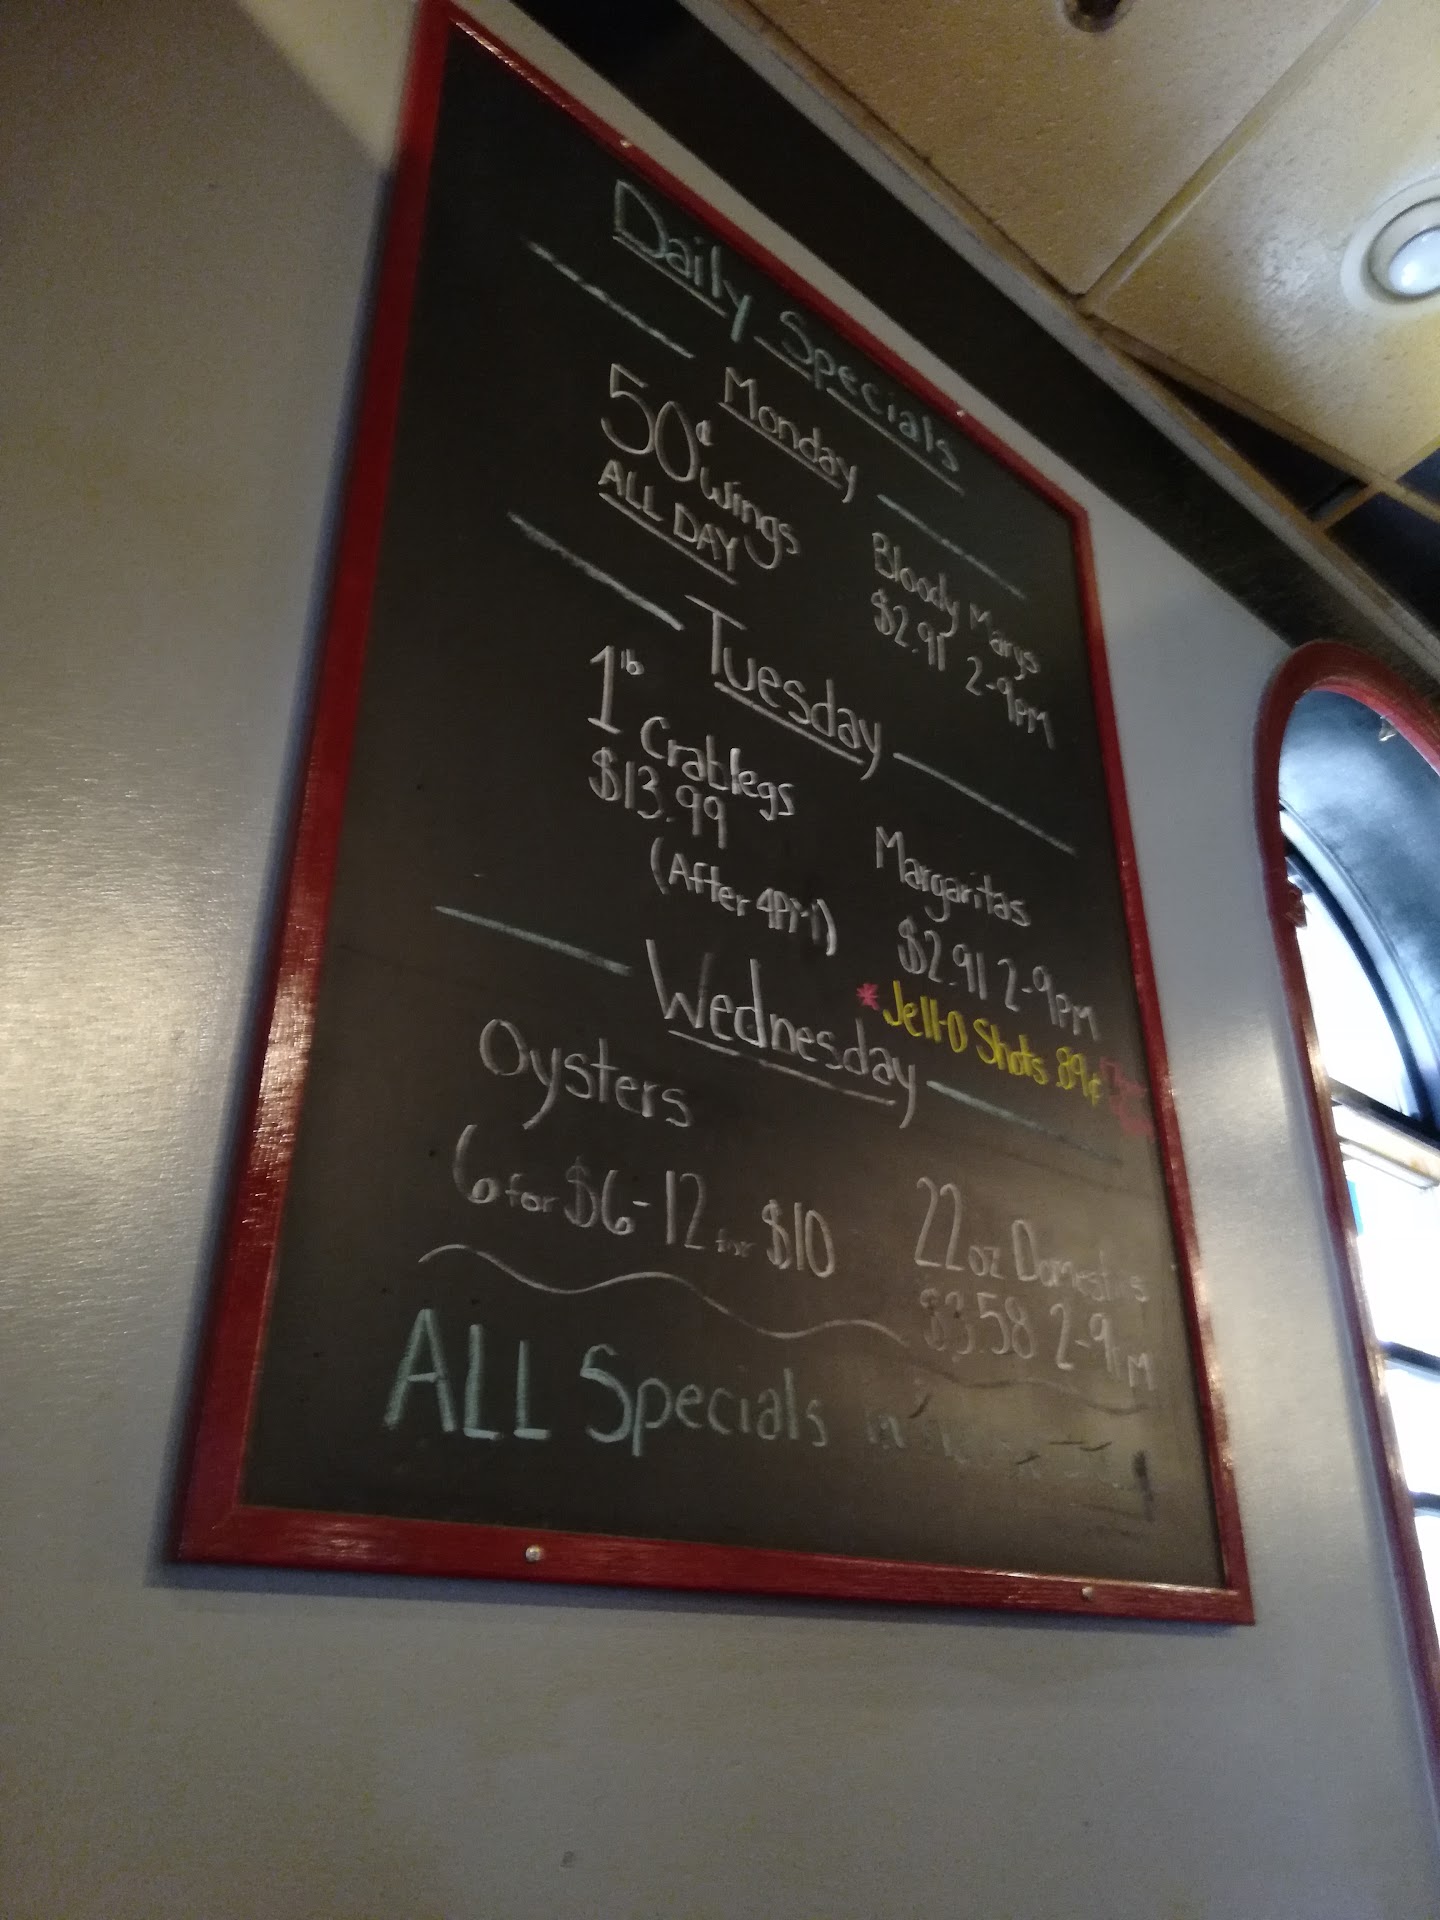 Daily Specials
Monday
50¢ wings
ALL DAY
Bloody Marys
$2.91 2-9PM
Tuesday
1lb Crablegs
$13.99
(After 4PM)
Margaritas
$2.91 2-9PM
*Jell-O Shots .89¢
Wednesday
Oysters
6 for $6-12 for $10
22oz Domestics
$3.58 2-9PM
ALL Specials